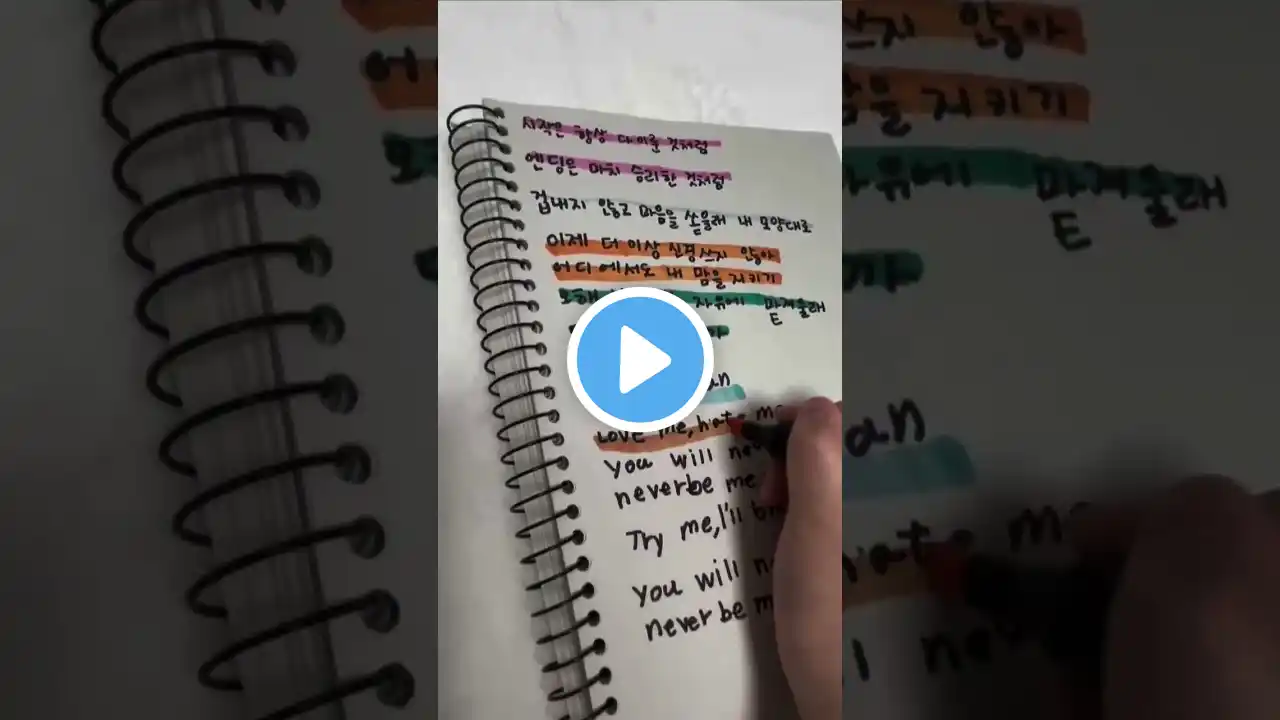 시작은 항상 다 이룬 것처럼
엔딩은 마치 승리한 것처럼
겁내지 않고 마음을 쏟을래 내 모양대로
이제 더 이상 신경쓰지 않아
어디에서도 내 맘을 지키기
오해 자유에 맡겨둘래
E
an
Love me, hate me
you will never
never be me
Try me, I'll
you will
never be